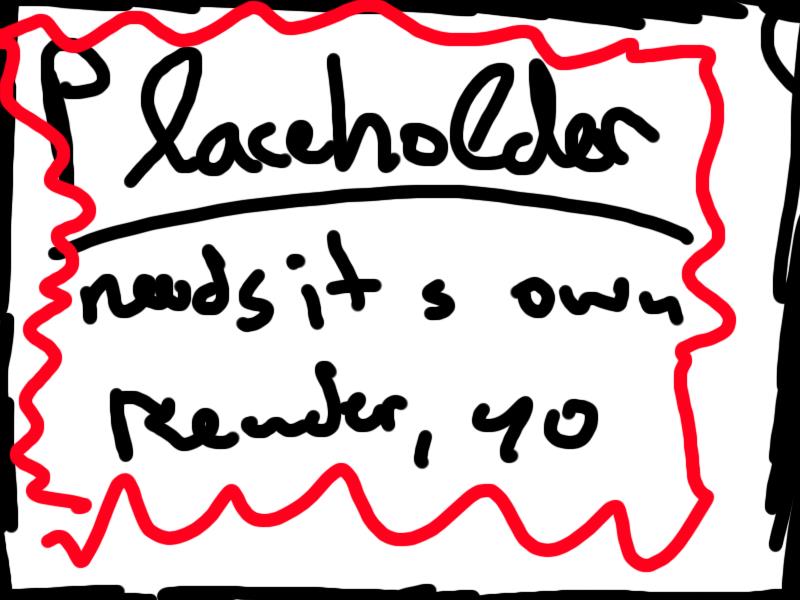 Placeholder
needs it s own
Render, yo